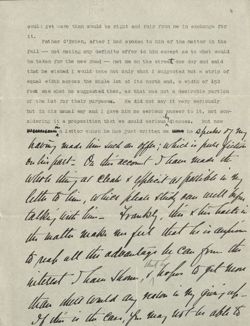 could get here than would be right and ruin from me in exchange for
it.
Father O'Brien, after I had spoken to him of the matter in the
fall -- not making any definite offer to him except as to what would
be taken for the new road -- met me on the street one day and said
that he wished I would take not only what I suggested but a strip of
equal width across the whole side of its north end, a width of 40½
rods and what he suggested that, as that was not a desirable portion
of the lot for their purposes. He did not say it very seriously
but in his usual way and I gave him no serious answer to it, not con-
sidering it a proposition that we would seriously discuss, but now
a letter which he has just written me he speaks of my
having made him such an offer, which is pure fiction
on his part. On this account I have made the
whole thing as clear & explicit as possible in my
letter to him, whose please study very well before
talking with him. Frankly, this & his tactics in
this matter make me feel that he is anxious
to reap all the advantage he can from the
interest I have shown, & hopes to get more
than there would be any reason in my giving up.
If this is the case, you may not be able to